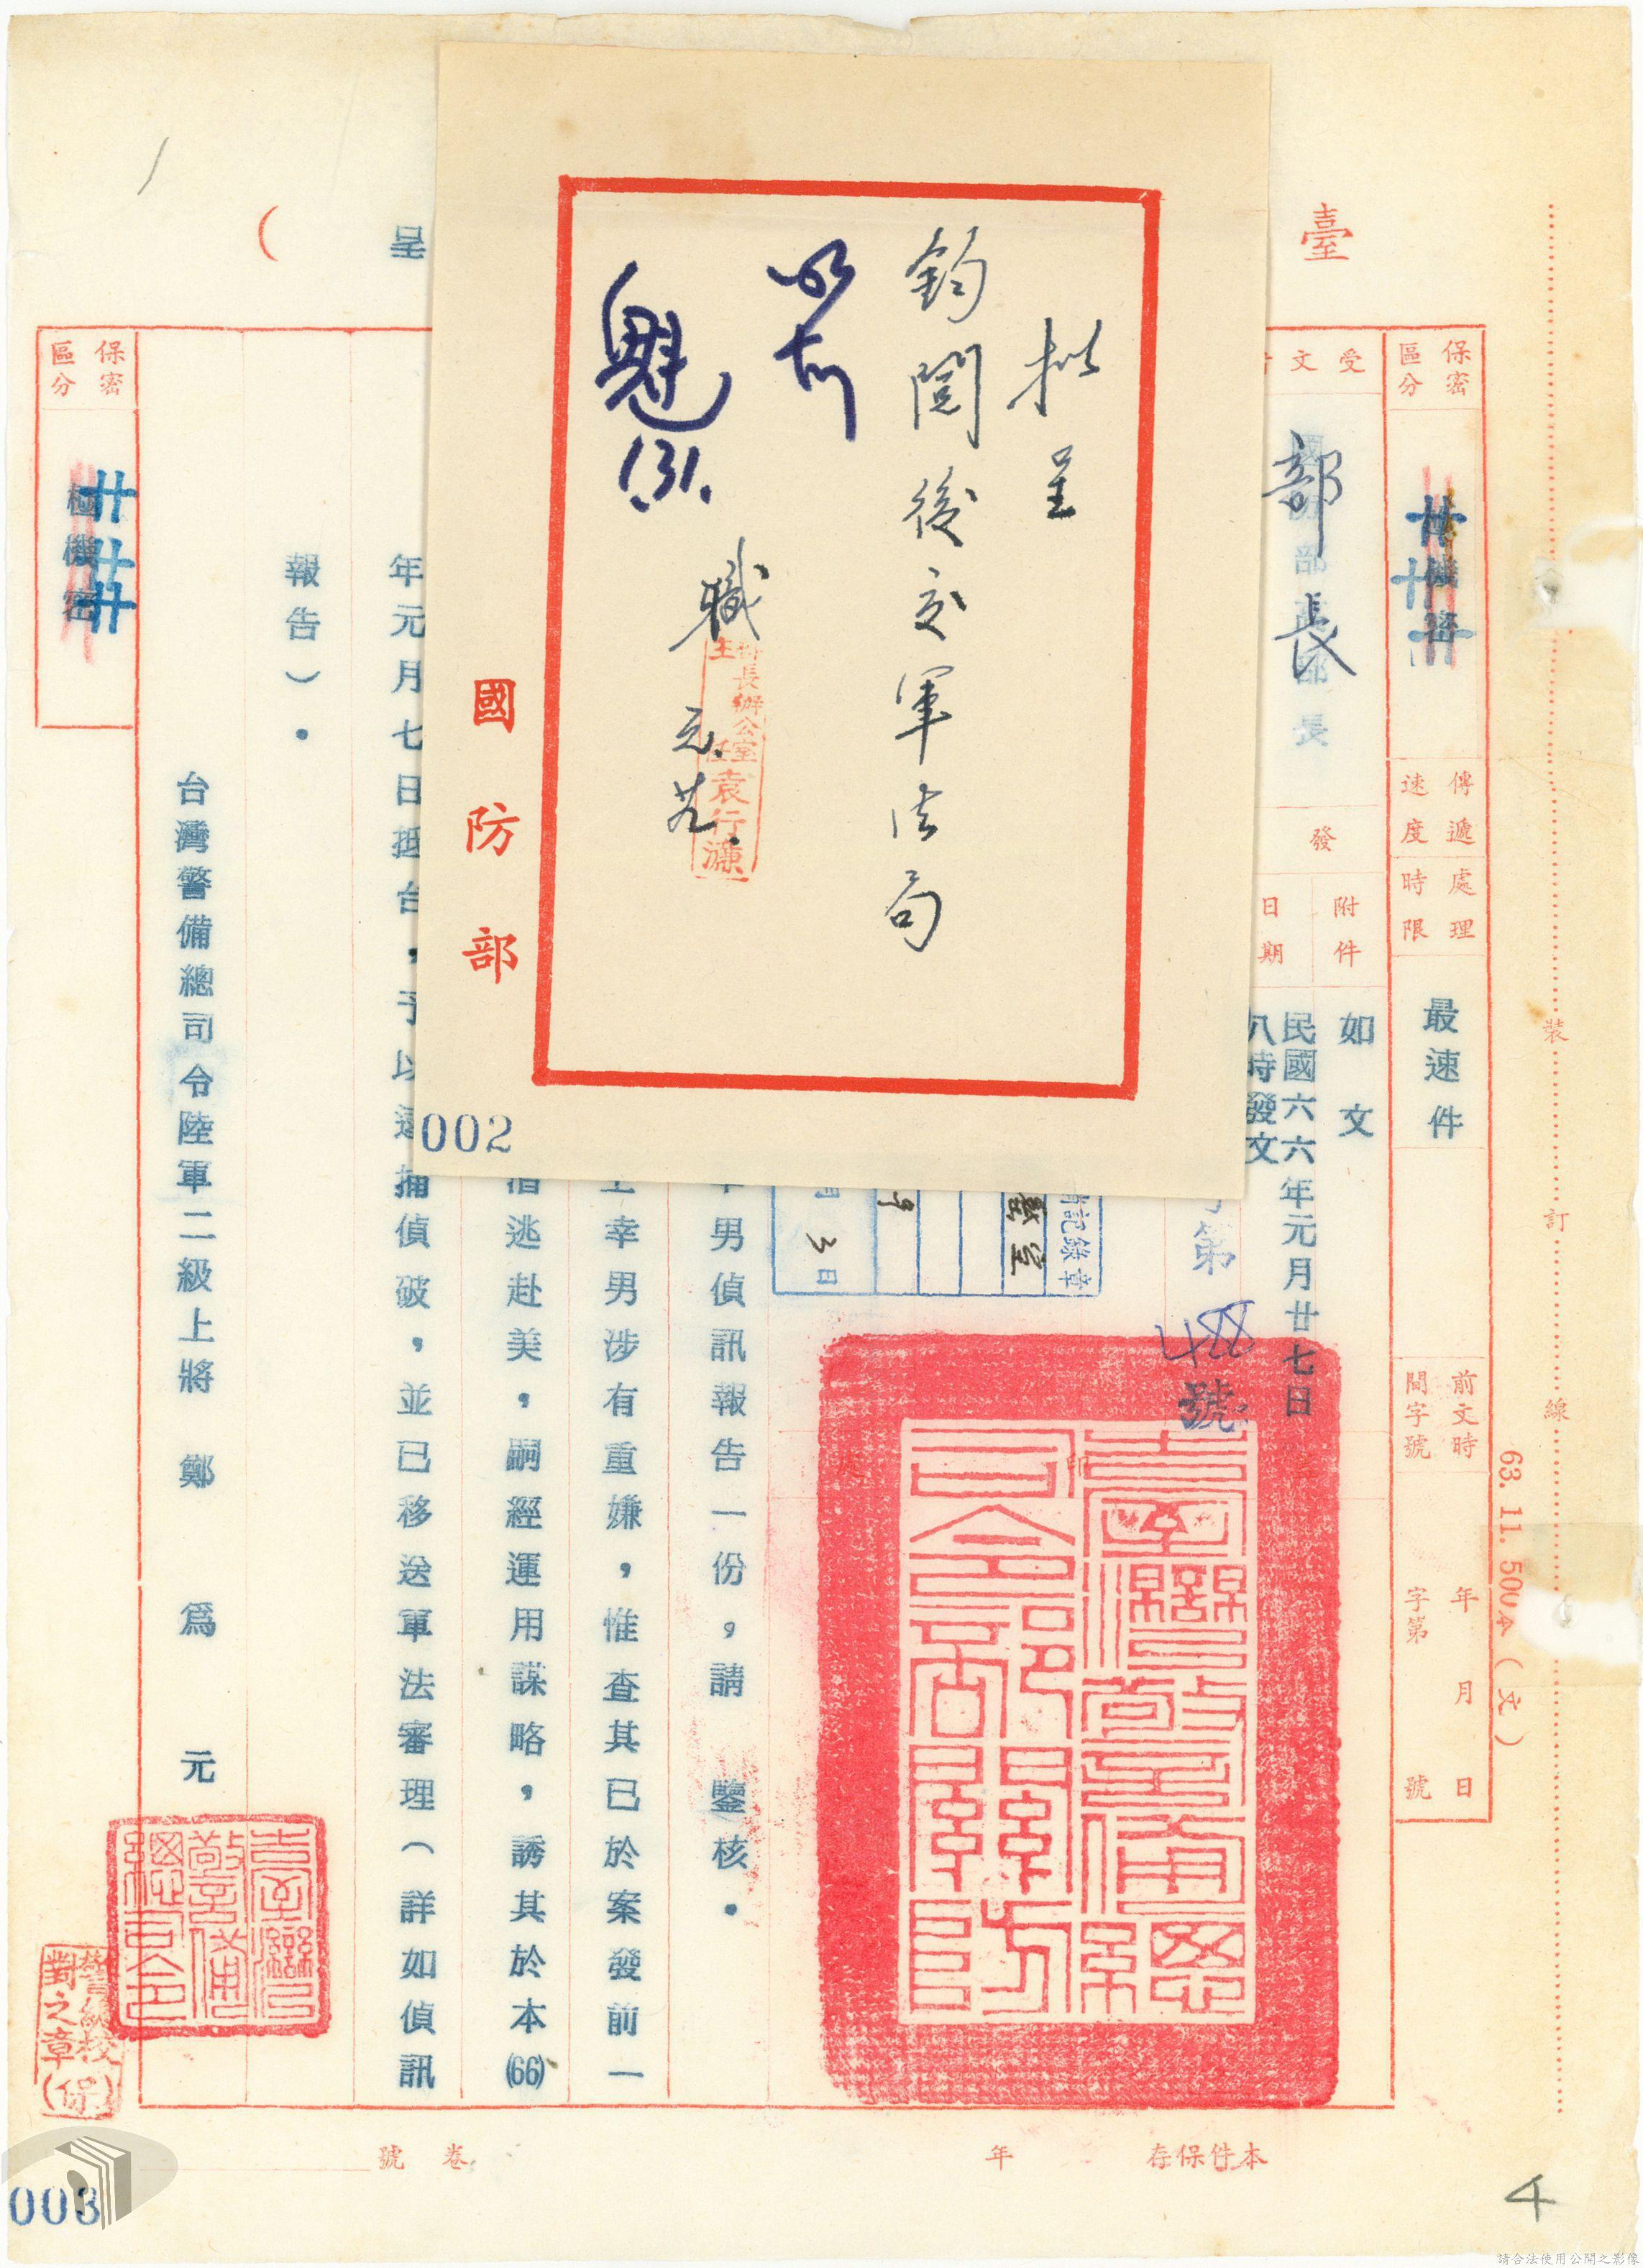 臺
保密
區分
極機密
傳遞
速度
處理
時限
最速件
前文時
間字號
年 月 日
字第 號
受文
部長
發
附件
如文
日期
民國六六年元月廿七日
八時發文
第 488 號
印
男偵訊報告一份，請 鑒核。
幸男涉有重嫌，惟查其已於案發前一
逃赴美，嗣經運用謀略，誘其於本(66)
年元月七日抵台，予以逮捕偵破，並已移送軍法審理（詳如偵訊
報告）。
台灣警備總司令陸軍二級上將 鄭為元
臺灣警備總司令部關防
臺灣警備總司令
呈
(
保密
區分
極機密
對之章
(保)
擬呈
鈞閱後交軍法局
職
部長辦公室
主任
袁行濂
魁
1/31.
國防部
002
003
記錄章
3日
裝
訂
線
63. 11. 500本（文）
本件保存 年
卷 號
4
請合法使用公開之影像